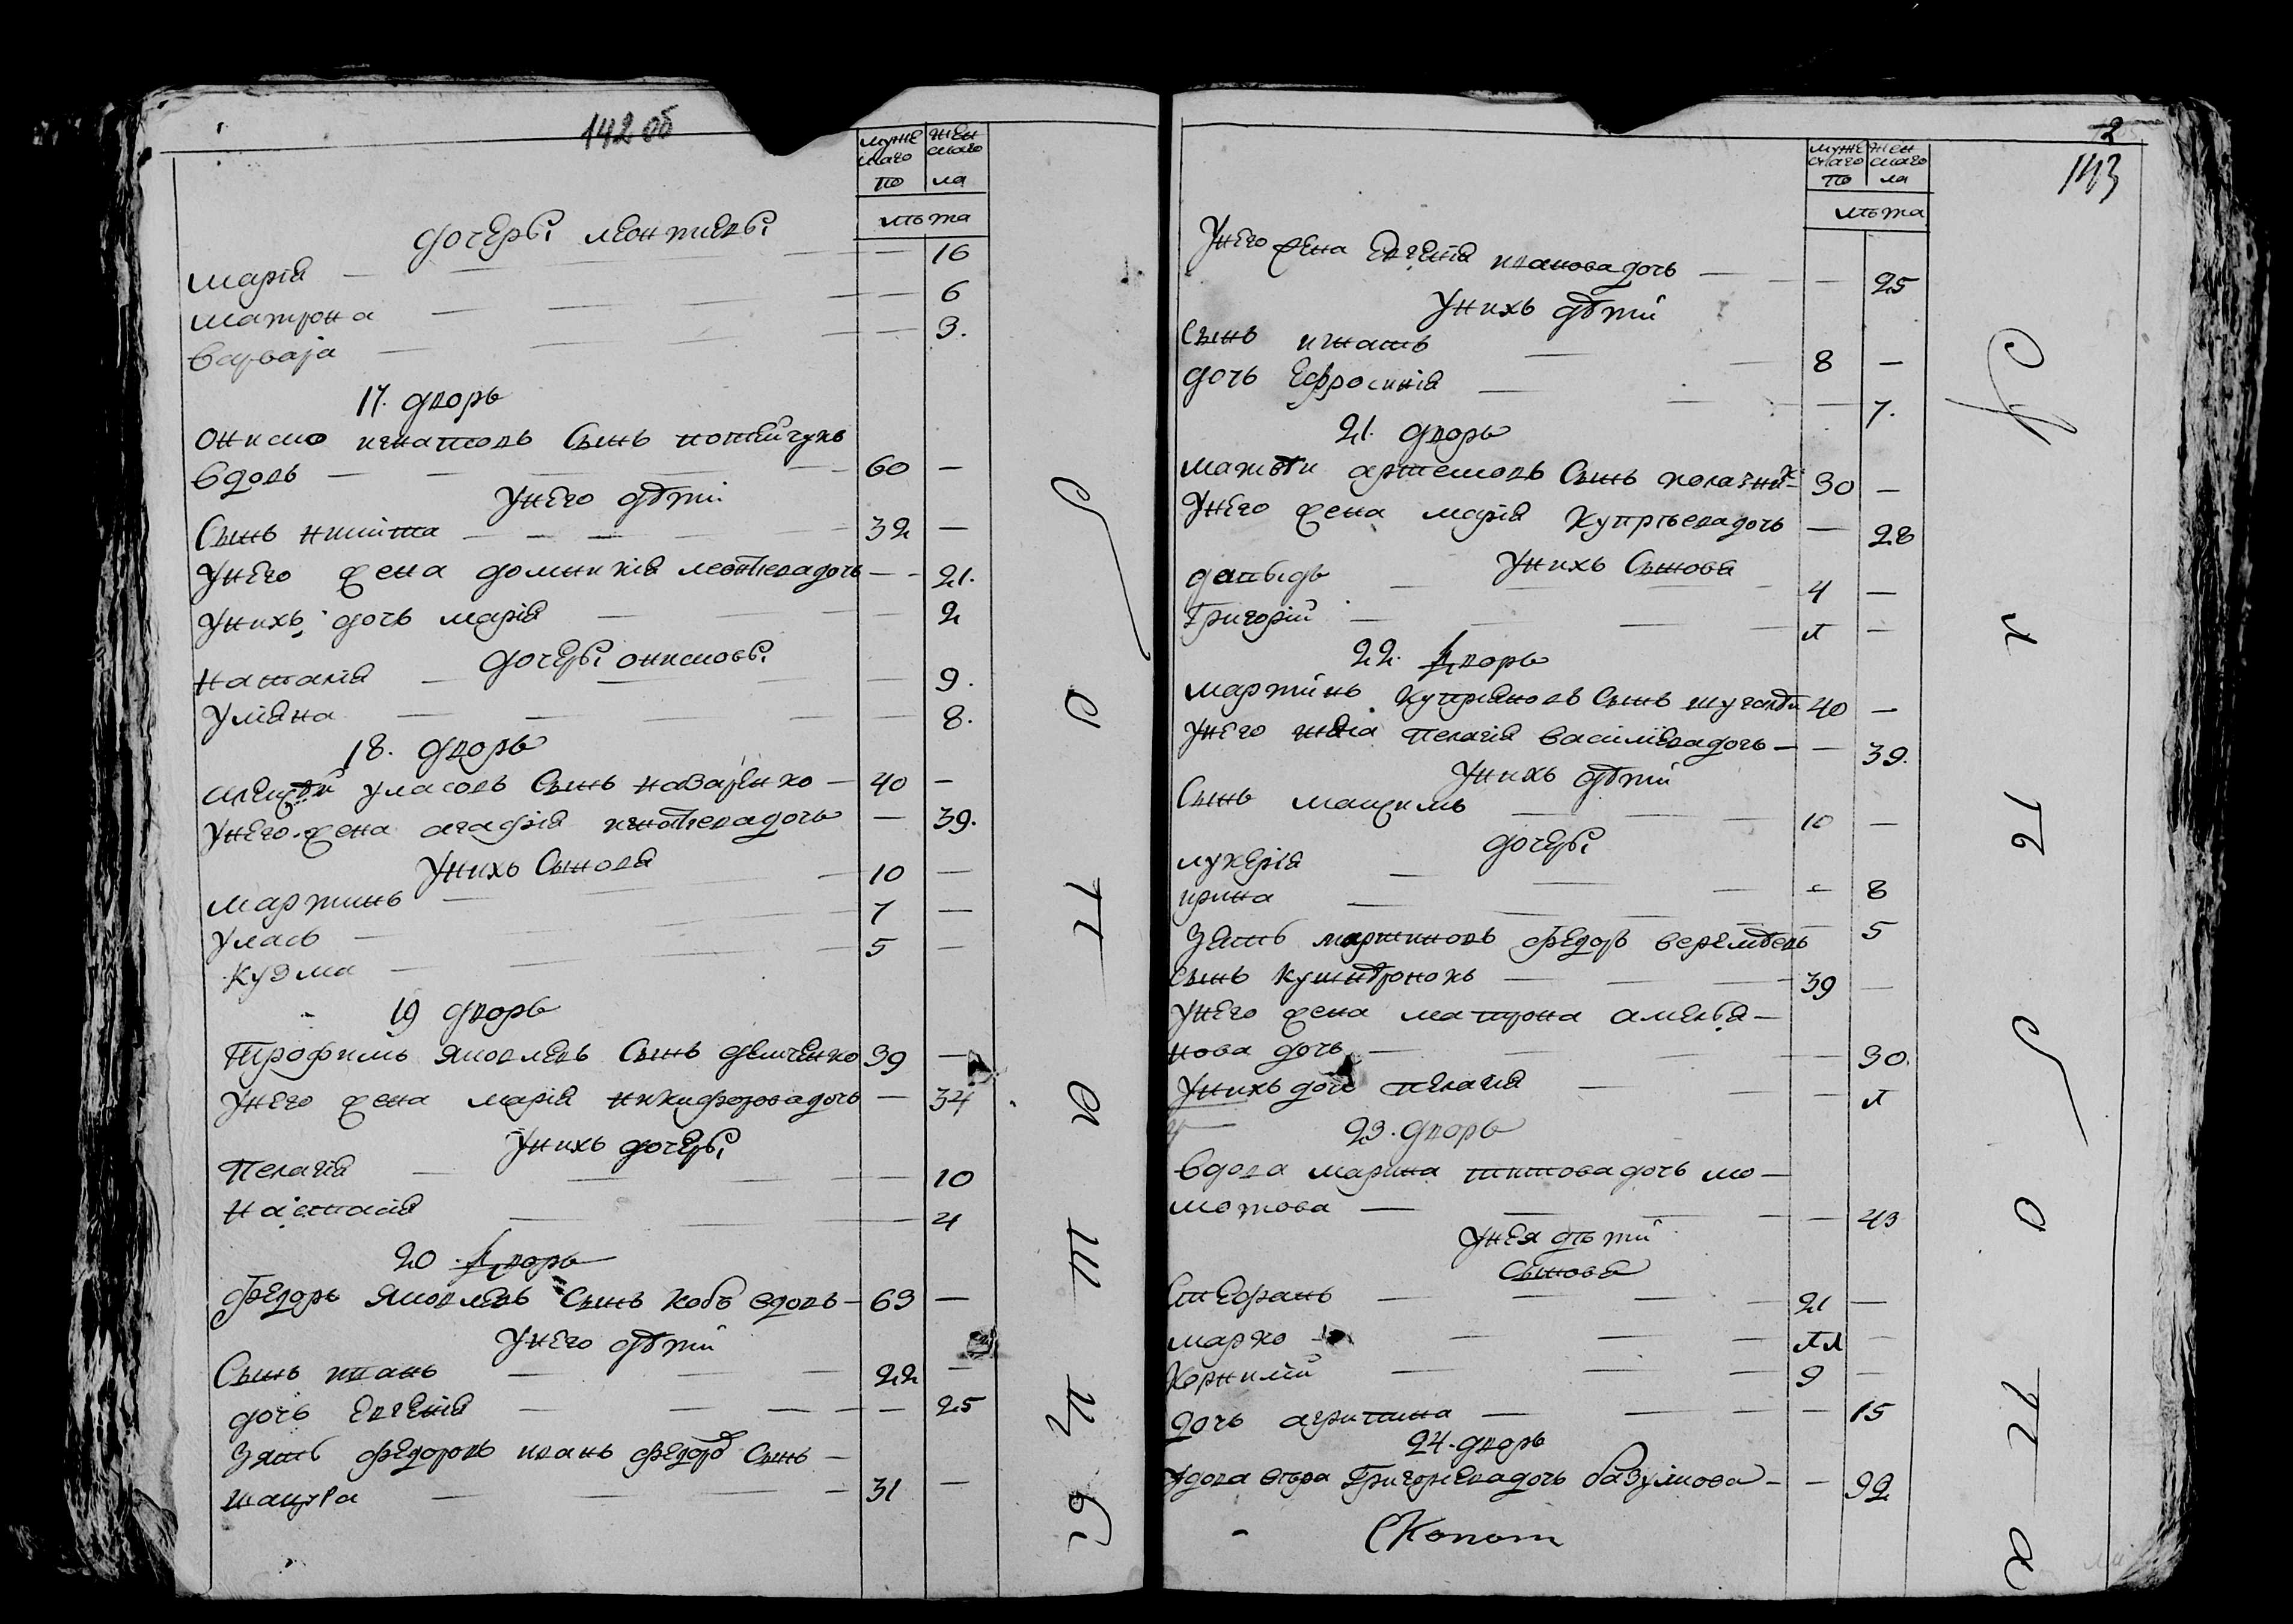 142 об
мужескаго женскаго
по ла
лѣта
дочеры леонтиевы
мария — 16
матрона — 6
варвара — 3.
17. дворъ
ониско игнатовъ Сынъ
вдовъ — 60 —
У него дѣти
Сынъ никита — 32 —
У него жена домникия леонтиева дочь — 21.
У нихъ дочь мария — 2
дочеры онисковы
наталия — 9.
Улияна — 8.
18. дворъ
алексѣй уласовъ Сынъ назаренко — 40 —
У него жена агафия игнатиева дочь — 39.
У нихъ Сынова
мартинъ — 10 —
уласъ — 7 —
кузма — 5 —
19 дворъ
Трофимъ яковлевъ Сынъ демченко 39 —
У него жена мария никифорова дочь — 34
У нихъ дочеры
Пелагия — 10
Настасия — 4
20. дворъ
федоръ яковлевъ Сынъ кобъ вдовъ — 63 —
У него дѣти
Сынъ иванъ — 22 —
дочь Евгения — 25
Зять федоровъ иванъ федоровъ Сынъ —
31 —
2
143
мужескаго женскаго
по ла
лѣта
У него жена Евгения иванова дочь — 25
У нихъ дѣти
Сынъ игнатъ — 8 —
дочь Ефросиния — 7.
21. дворъ
матвѣи артемовъ Сынъ 30 —
У него жена мария Куприева дочь — 28
У нихъ Сынова
давыдъ — 4 —
Григорий — л —
22. дворъ
мартинъ Куприяновъ Сынъ 40 —
У него жена Пелагия василиева дочь — 39.
У нихъ дѣти
Сынъ максимъ — 10 —
дочеры
лукерия — 8
ирина — 5
Зять мартиновъ федоръ веремѣевъ
Сынъ — 39 —
У него жена матрона амелья-
нова дочь — 30.
У нихъ дочь пелагия — л
23. дворъ
Вдова марина титова дочь мо-
лотова — 43
У нея дѣти
Сынова
Стефанъ — 21 —
марко — лл —
Корнилий — 9 —
дочь агрипина — 15
24. дворъ
Вдова Григориева дочь — 92
Скопот